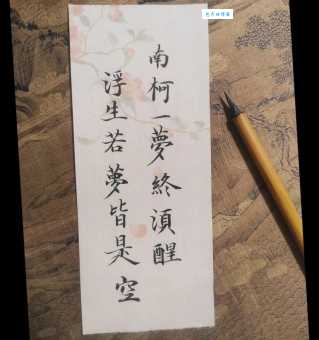 南柯一夢終須醒
浮生若夢皆是空